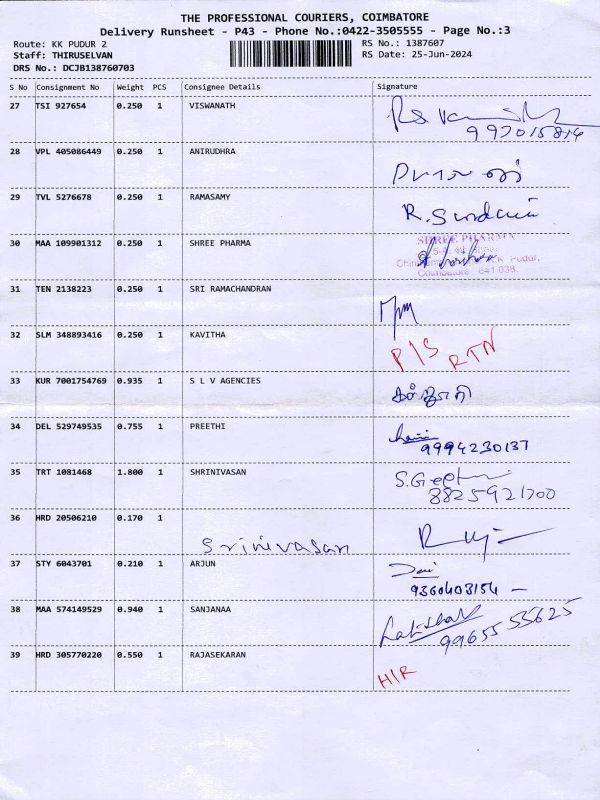 THE PROFESSIONAL COURIERS, COIMBATORE
Delivery Runsheet - P43 - Phone No.:0422-3505555 - Page No.:3
Route: KK PUDUR 2 RS No.: 1387607
Staff: THIRUSELVAN RS Date: 25-Jun-2024
DRS No.: DCJB138760703
S No Consignment No Weight PCS Consignee Details Signature
27 TSI 927654 0.250 1 VISWANATH
28 VPL 405086449 0.250 1 ANIRUDHRA
29 TVL 5276678 0.250 1 RAMASAMY R.Sundaram
30 MAA 109901312 0.250 1 SHREE PHARMA
SHREE PHARMA
K. Pudur,
Coimbatore 641 038.
31 TEN 2138223 0.250 1 SRI RAMACHANDRAN
32 SLM 348893416 0.250 1 KAVITHA P/S RTN
33 KUR 7001754769 0.935 1 S L V AGENCIES
34 DEL 529749535 0.755 1 PREETHI
9994230137
35 TRT 1081468 1.800 1 SHRINIVASAN S.Geetha
8825921700
36 HRD 20506210 0.170 1
Srinivasan
37 STY 6043701 0.210 1 ARJUN
9360403154
38 MAA 574149529 0.940 1 SANJANAA
99655 55625
39 HRD 305770220 0.550 1 RAJASEKARAN H/R